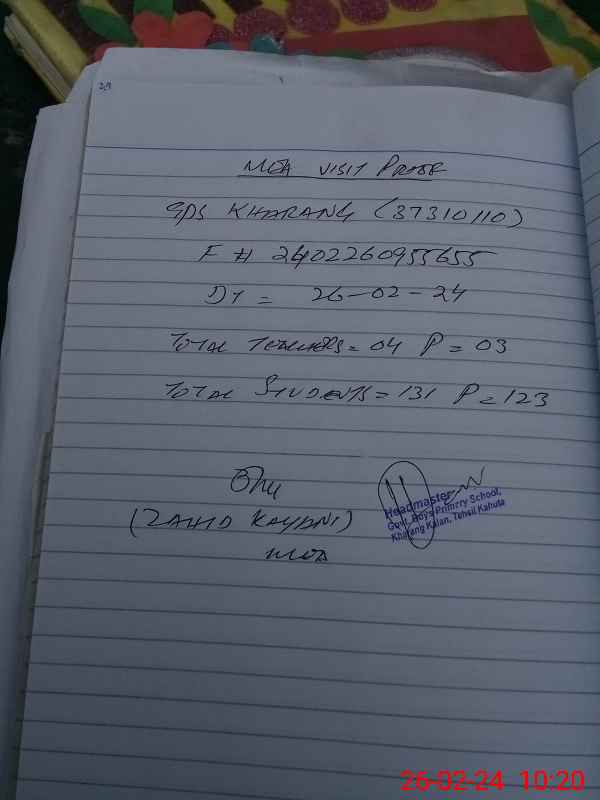 MEA VISIT PROOF
GPS KHARANG (37310110)
F # 2402260955655
DT = 26-02-24
TOTAL TEACHERS = 04 P = 03
TOTAL STUDENTS = 131 P = 123
(ZAHID KAYANI)
MEA
Headmaster
Govt. Boys Primrry School,
Kharang Kalan, Tehsil Kahuta
26-02-24 10:20